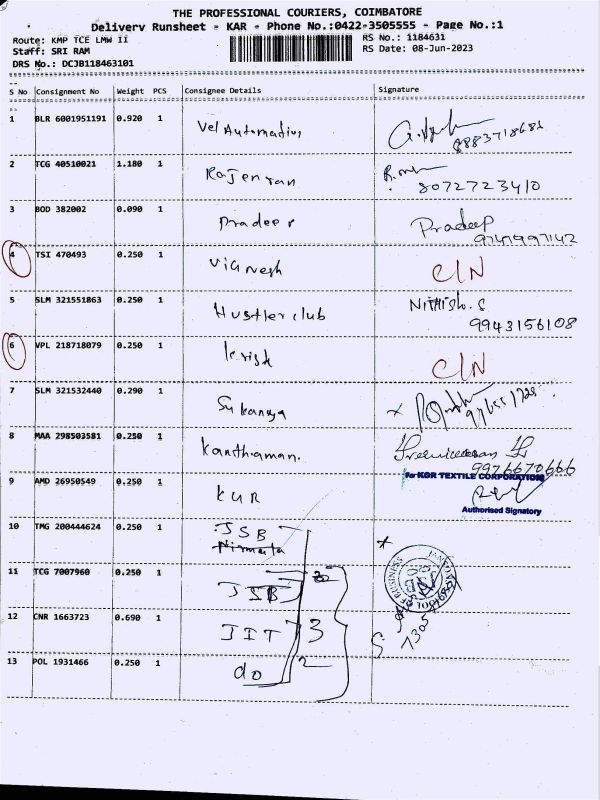 THE PROFESSIONAL COURIERS, COIMBATORE
Delivery Runsheet - KAR - Phone No.:0422-3505555 - Page No.:1
Route: KMP TCE LMW II
RS No.: 1184631
Staff: SRI RAM
RS Date: 08-Jun-2023
DRS No.: DCJB118463101
S No Consignment No Weight PCS Consignee Details Signature
1 BLR 6001951191 0.920 1 Vel Automation
8883718681
2 TCG 40510021 1.180 1 Rajendran
8072723410
3 BOD 382002 0.090 1 Pradeep Pradeep
9747997142
4 TSI 470493 0.250 1 Vignesh C/N
5 SLM 321551863 0.250 1 Hustler club Nithish. S
9943156108
6 VPL 218718079 0.250 1 C/N
7 SLM 321532440 0.290 1 Sukanya
8 MAA 298503581 0.250 1 Kanthamani
9976670666
9 AMD 26950549 0.250 1 KUR
For KOR TEXTILE CORPORATION
Authorised Signatory
10 TMG 200444624 0.250 1 JSB
Nirmala
11 TCG 7007960 0.250 1 JSB
12 CNR 1663723 0.690 1 JIT 3
13 POL 1931466 0.250 1 do 2